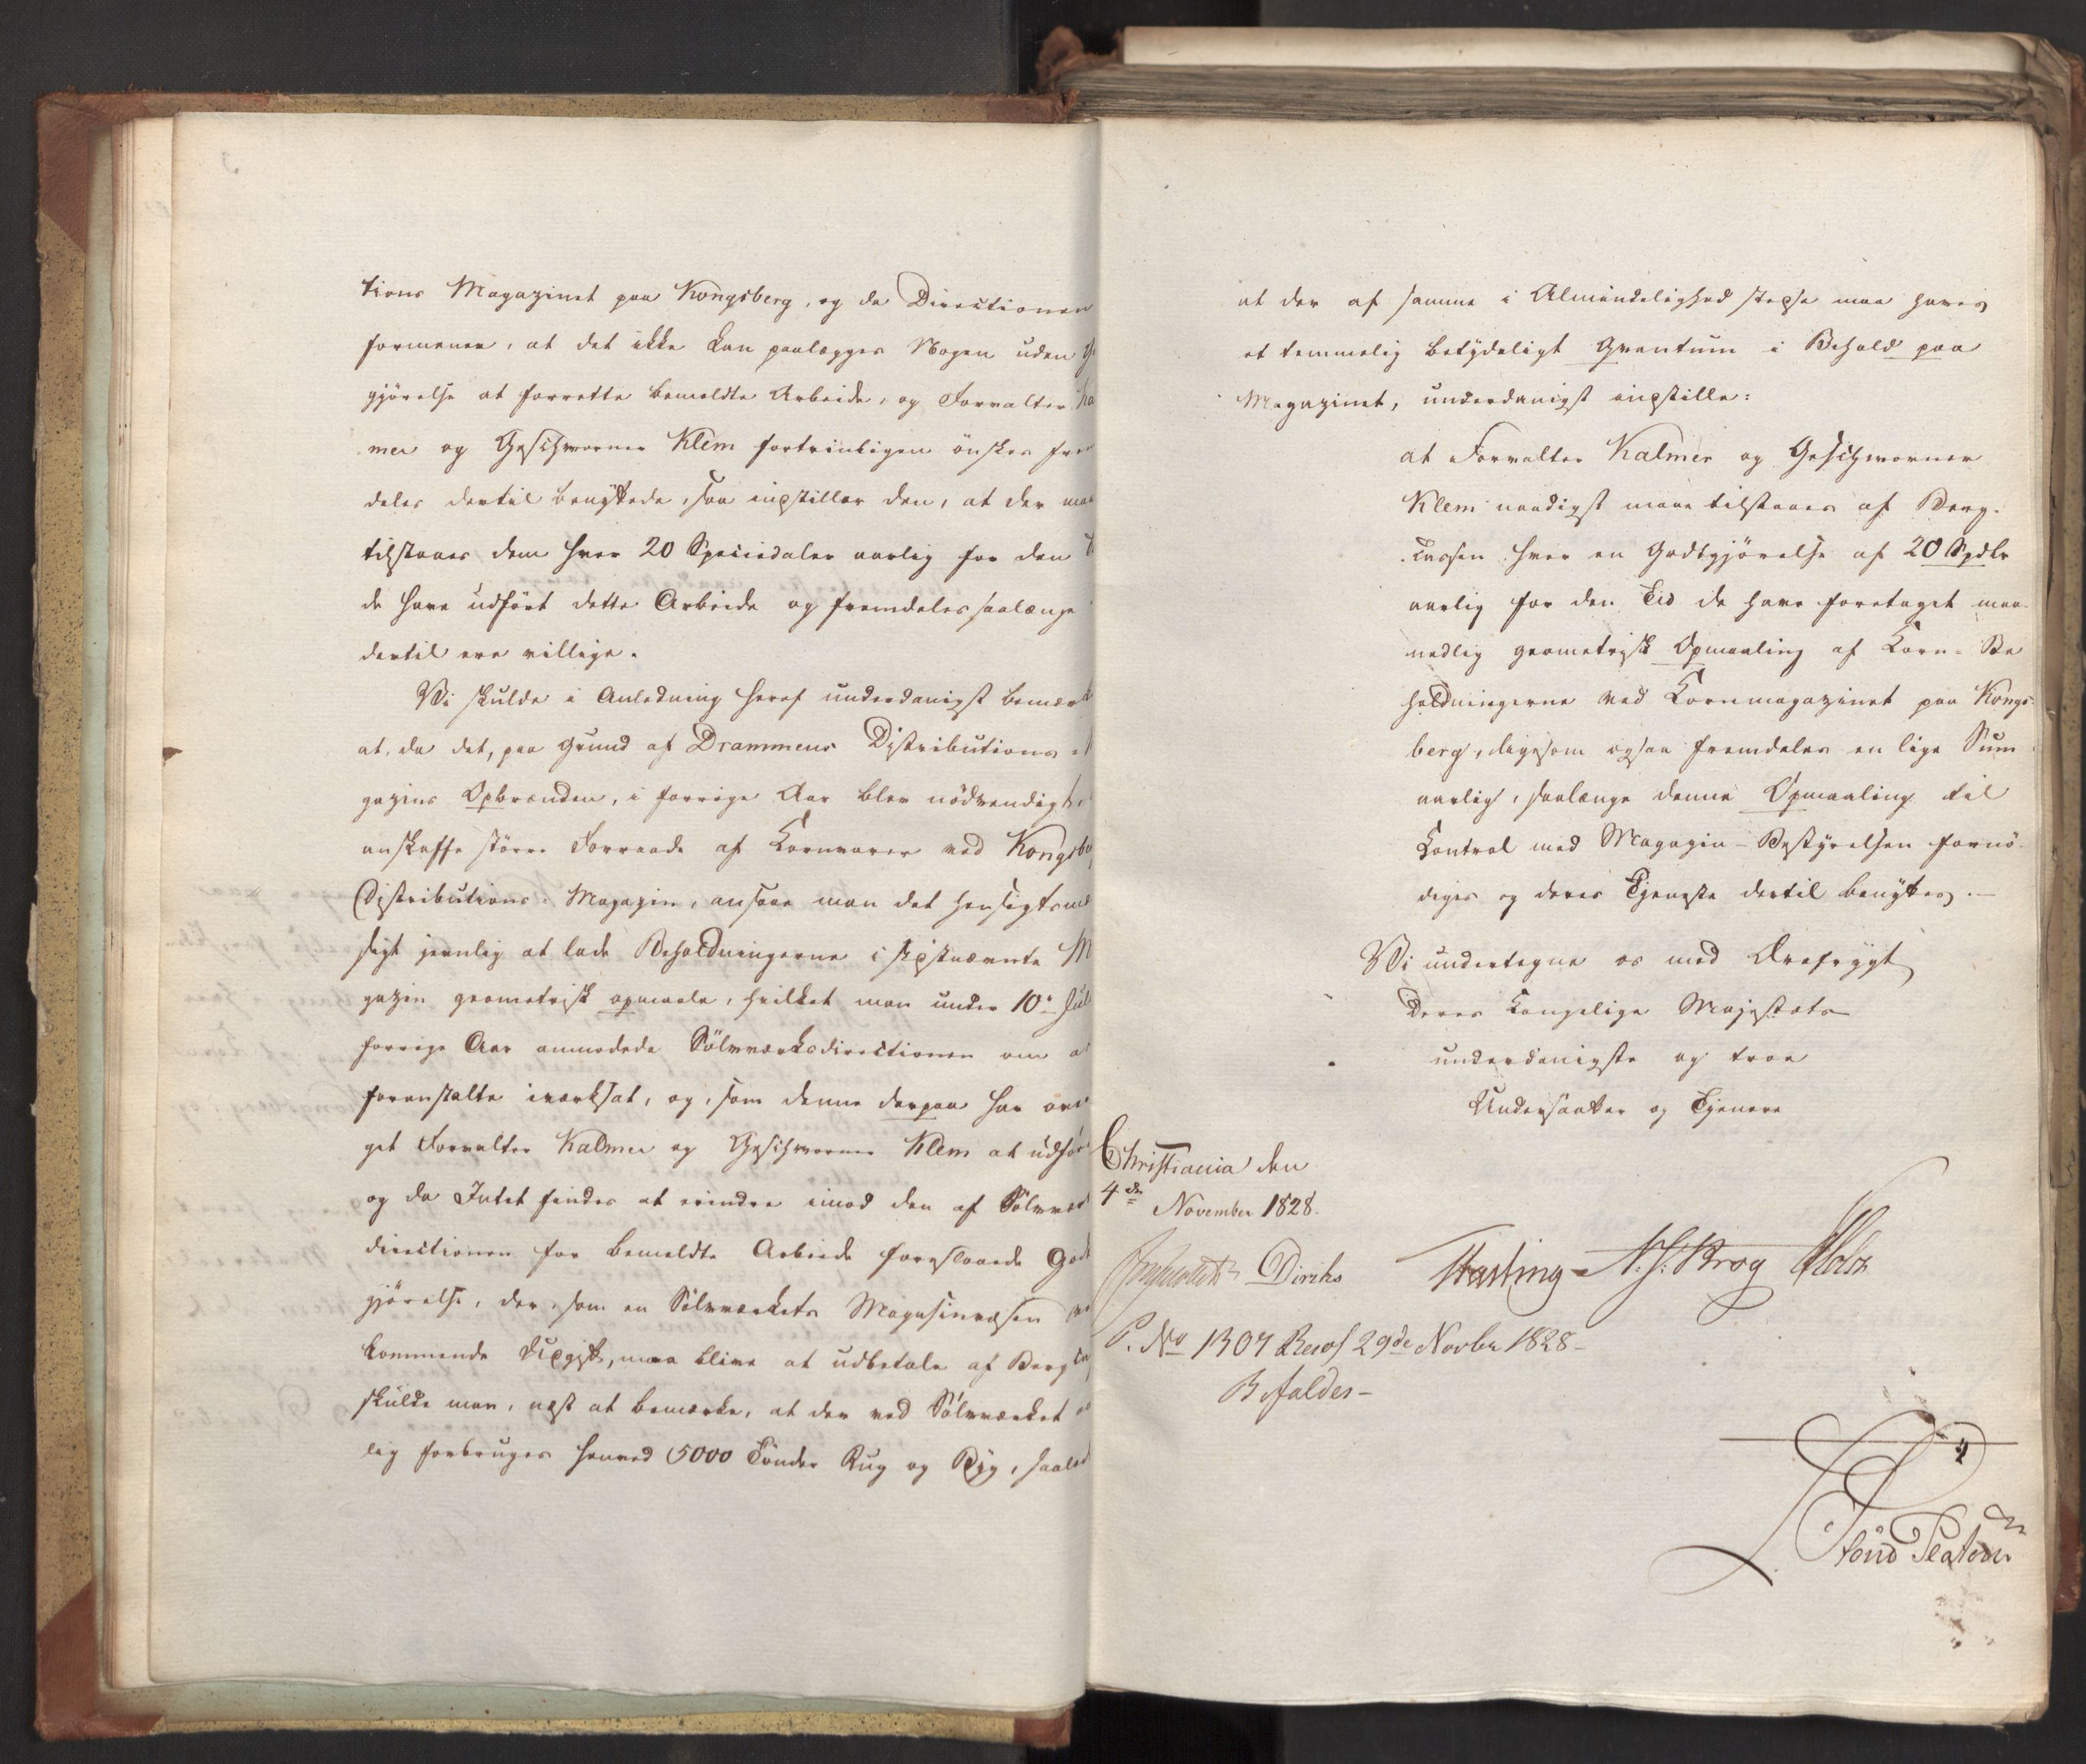 tions Magazinet paa Kongsberg, og da Directionen
formener, at det ikke kan paalægges Nogen uden
gjørelse at forrette bemeldte Arbeide, og Forvalter Ka
mer og Geschworner Klem fortrinligen ønskes frem
deles dertil benyttede, saa indstiller den, at der maa
tilstaaes dem hver 20 Speciedaler aarlig for den T
de have udført dette Arbeide og fremdeles saalænge
dertil ere villige.
Vi skulde i Anledning heraf underdanigst bemærk
at, da det, paa Grund af Drammens Distributions
gazins Opbrænden, i forrige Aar blev nødvendigt
anskaffe større Forraade af Kornvarer ved Kongsbe
Distributions-Magazin, ansaae man det hensigtsmæ
sigt jevnlig at lade Beholdningerne i sidstnævnte M
gazin geometrisk opmaale, hvilket man under 10de Juli
forrige Aar anmodede Sølvværksdirectionen om at
foranstalte iværksat, og, som denne derpaa har over
get Forvalter Kalmer og Geschworner Klem at udføre
og da Intet findes at erindre imod den af Sølvvær
directionen for bemeldte Arbeide foreslaaede Godt
gjørelse, der, som en Sølvværkets Magasinvæsen ved
kommende Udgift, maa blive at udbetale af Bergca
skulde man, næst at bemærke, at der ved Sølvværket aar
lig forbruges henved 5000 Tønder Rug og Byg, saaled
at der af samme i Almindelighed stedse maa haves
et temmelig betydeligt Qvantum i Behold paa
Magazinet, underdanigst indstille:
at Forvalter Kalmer og Geschworner
Klem naadigst maae tilstaaes af Berg-
cassen hver en Godtgjørelse af 20 Spdlr
aarlig for den Tid de have foretaget maa-
nedlig geometrisk Opmaaling af Korn-Be
holdningerne ved Kornmagazinet paa Kongs-
berg, ligesom ogsaa fremdeles en lige Sum
aarlig, saalænge denne Opmaaling til
Control med Magazin-Bestyrelsen fornø-
diges og deres Tjeneste dertil benyttes.—
Vi undertegne os med Ærefrygt
Deres Kongelige Majestæts
underdanigste og troe
Undersaatter og Tjenere
Christiania den
4de November 1828.
Diriks Fasting N. J. Krog Holst
P. No 1307 Resol 29de Novbr 1828-
Bifaldes-